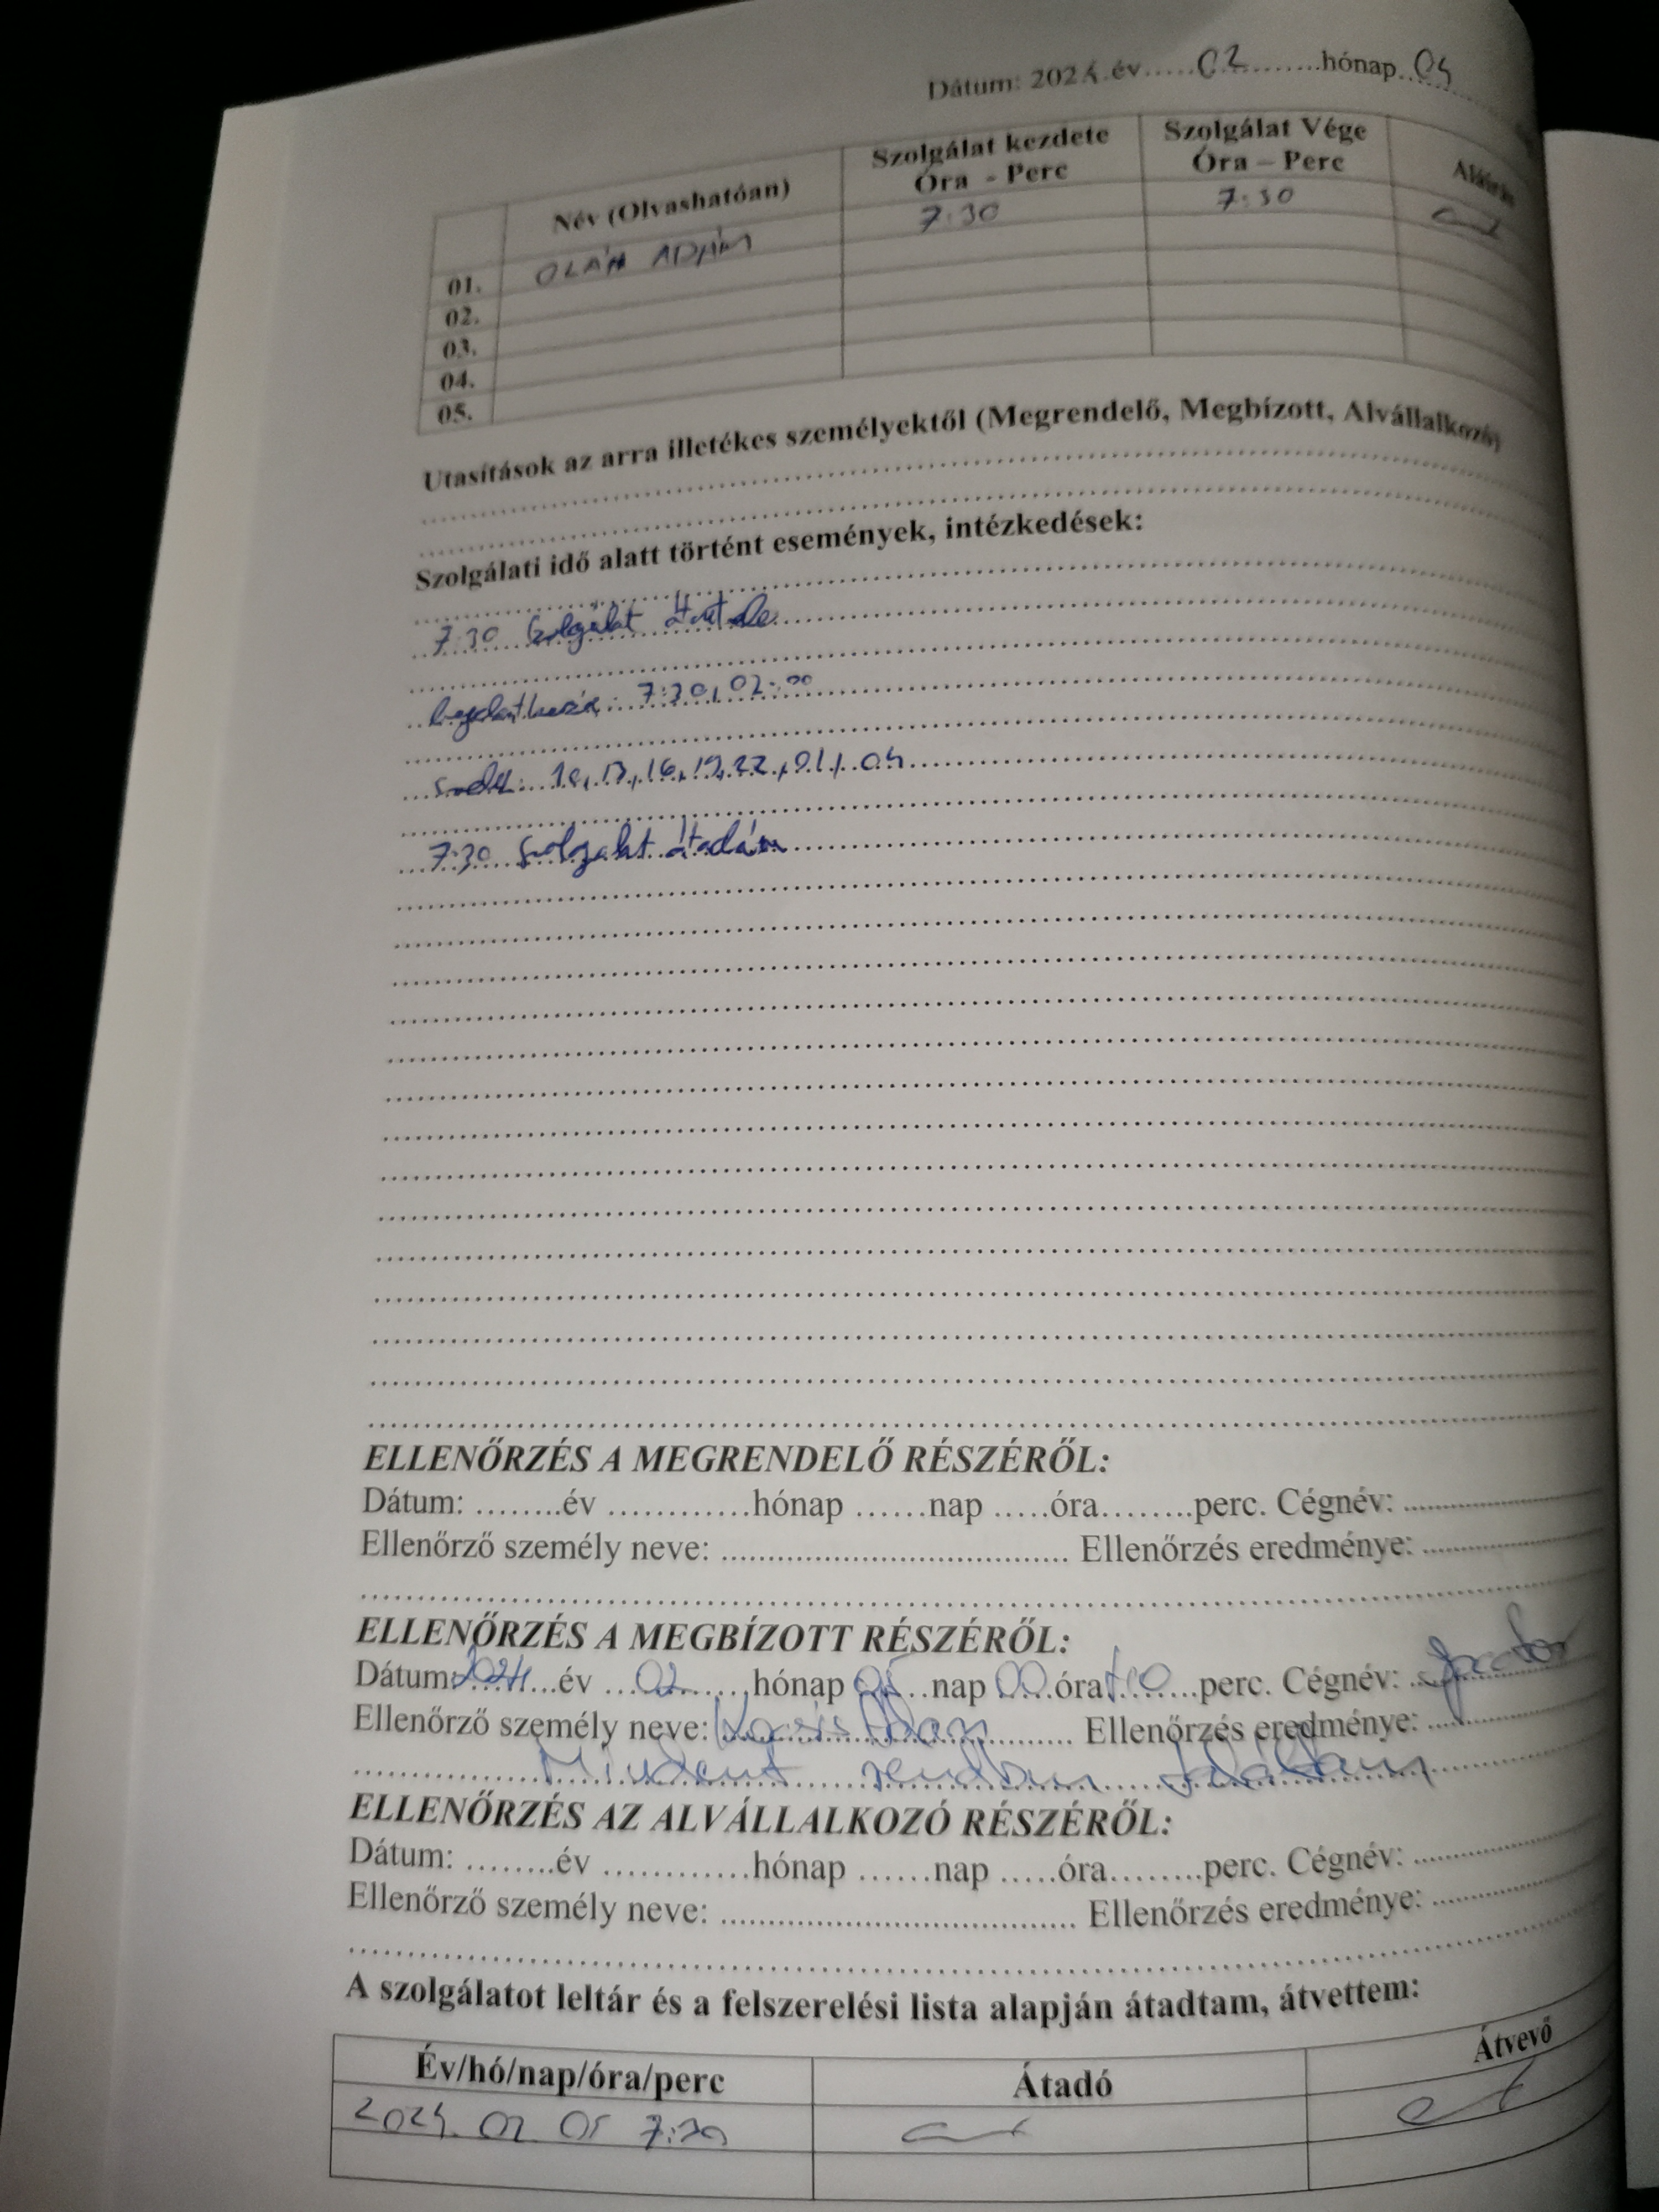 Dátum: 2024.év.....02..........hónap..04
Név (Olvashatóan)
Szolgálat kezdete
Óra - Perc
Szolgálat Vége
Óra – Perc
Aláírás
01. OLÁH ÁDÁM 7:30 7:30
02.
03.
04.
05.
Utasítások az arra illetékes személyektől (Megrendelő, Megbízott, Alvállalkozó)
Szolgálati idő alatt történt események, intézkedések:
7:30 Szolgálat
7:30, 02:00
16, 19, 22, 01, 04
7:30 Szolgalat átadás
ELLENŐRZÉS A MEGRENDELŐ RÉSZÉRŐL:
Dátum: ........év ............hónap ......nap .....óra........perc. Cégnév: ................
Ellenőrző személy neve: .................................... Ellenőrzés eredménye: ................
ELLENŐRZÉS A MEGBÍZOTT RÉSZÉRŐL:
Dátum: 2024 év 02 hónap 05 nap 00 óra perc. Cégnév:
Ellenőrző személy neve: Ellenőrzés eredménye:
Mindent rendben találtam
ELLENŐRZÉS AZ ALVÁLLALKOZÓ RÉSZÉRŐL:
Dátum: ........év ............hónap ......nap .....óra........perc. Cégnév: ................
Ellenőrző személy neve: .................................... Ellenőrzés eredménye: ................
A szolgálatot leltár és a felszerelési lista alapján átadtam, átvettem:
Év/hó/nap/óra/perc Átadó Átvevő
2024. 02 05 7:30